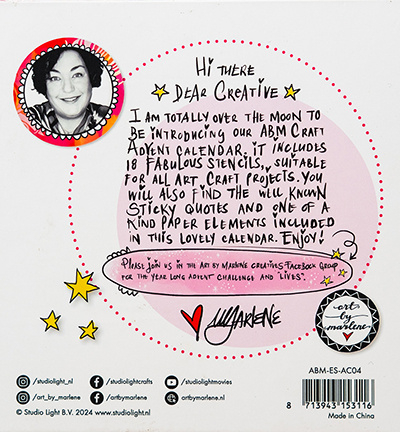 Hi There
Dear Creative
I am totally over the moon to
be introducing our ABM Craft
Advent Calendar. It includes
18 fabulous stencils, suitable
for all art craft projects. You
will also find the well known
sticky quotes and one of a
kind paper elements included
in this lovely calendar. Enjoy!
Please join us in the Art by Marlene Creatives Facebook Group
for the year long advent challenge and "Lives".
Marlene
art
by
marlene
ABM-ES-AC04
/studiolight_nl
/studiolightcrafts
/studiolightmovies
/art_by_marlene
/artbymarlene
artbymarlene.nl
© Studio Light B.V. 2024 www.studiolight.nl
Made in China
8 713943 153116